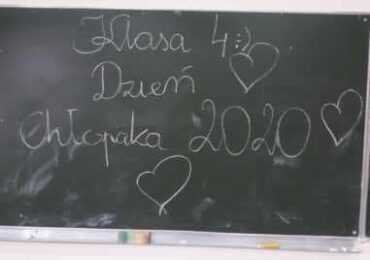 Klasa 4 :)
Dzień
Chłopaka 2020